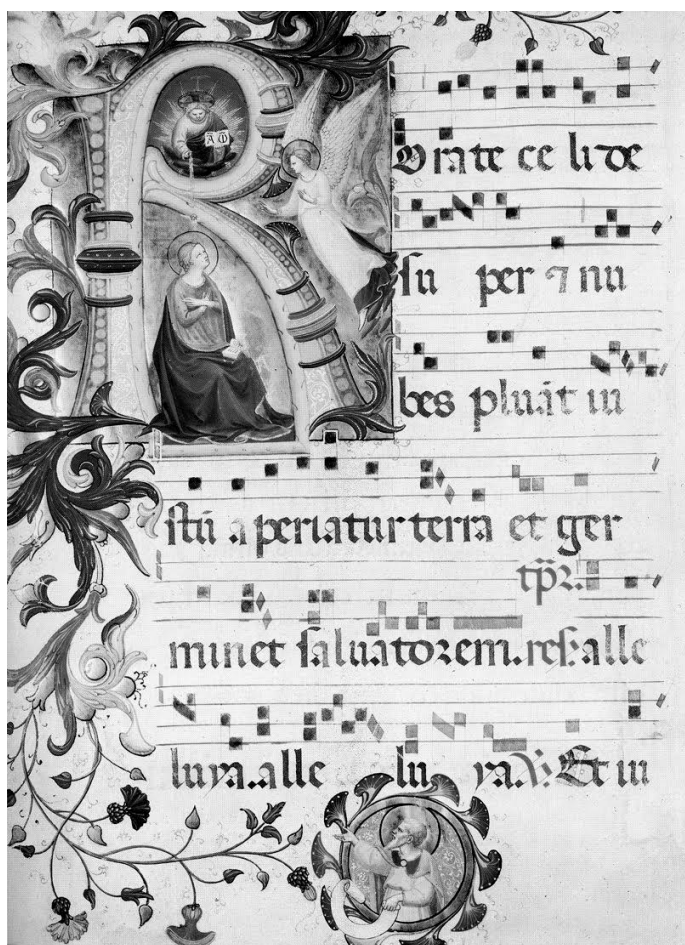 A Ω
ROrate ce li de
su per ⁊ nu
bes pluāt iu
stū aperiatur terra et ger
minet saluatorem. res. alle
luya. alle lu ya. ℣. Et iu